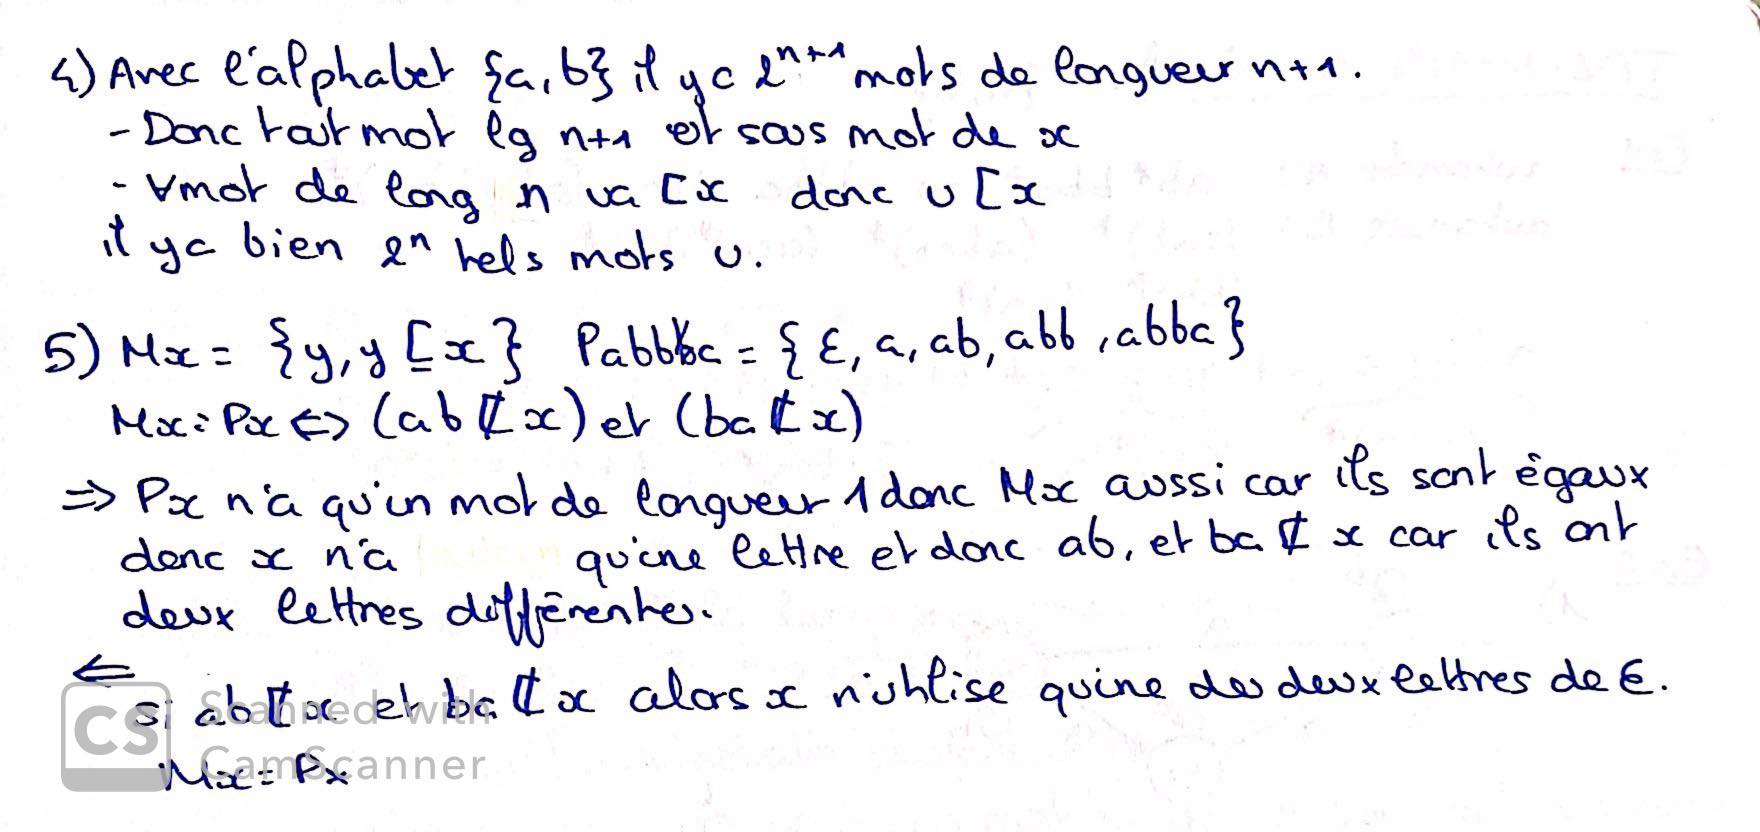 4) Avec l'alphabet {a, b} il y a 2ⁿ⁺¹ mots de longueur n+1.
- Donc tout mot lg n+1 est sous mot de x
- ∀mot de long n ua ⊏ x donc u ⊏ x
il y a bien 2ⁿ tels mots u.
5) Mx = {y, y ⊑ x} Pabba = {ε, a, ab, abb, abba}
Mx = Px ⇔ (ab ⊄ x) et (ba ⊄ x)
⇒ Px n'a qu'un mot de longueur 1 donc Mx aussi car ils sont égaux
donc x n'a qu'une lettre et donc ab, et ba ⊄ x car ils ont
deux lettres différentes.
⇐
si ab ⊄ x et ba ⊄ x alors x n'utilise qu'une des deux lettres de ∈.
Mx = Px
CS Scanned with
CamScanner